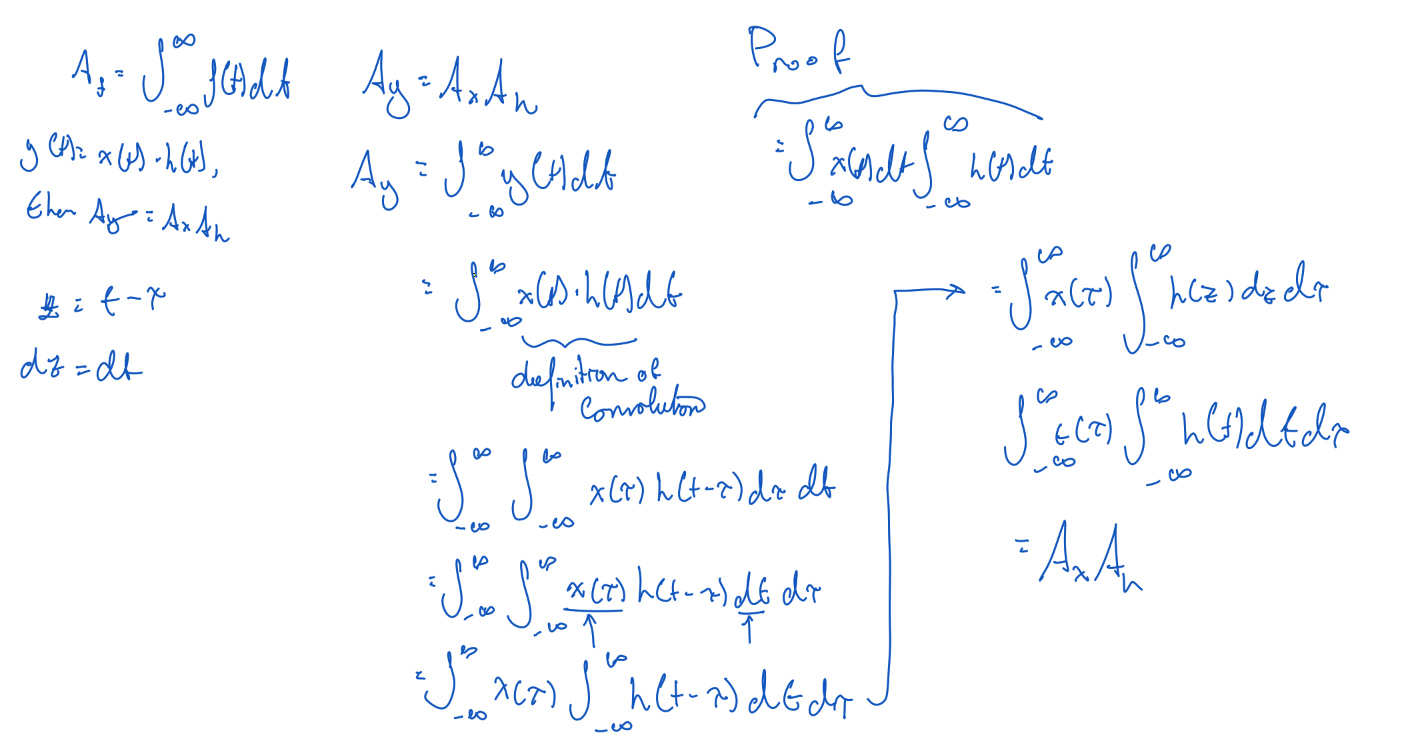 A_f = ∫_{-∞}^{∞} f(t)dt
y(t) = x(t)·h(t),
then A_y = A_x A_h
z = t-τ
dz = dt
A_y = A_x A_h
A_y = ∫_{-∞}^{∞} y(t)dt
= ∫_{-∞}^{∞} x(t)·h(t)dt
definition of
Convolution
= ∫_{-∞}^{∞} ∫_{-∞}^{∞} x(τ) h(t-τ) dτ dt
= ∫_{-∞}^{∞} ∫_{-∞}^{∞} x(τ) h(t-τ) dt dτ
= ∫_{-∞}^{∞} x(τ) ∫_{-∞}^{∞} h(t-τ) dt dτ
Proof
= ∫_{-∞}^{∞} x(t)dt ∫_{-∞}^{∞} h(t)dt
= ∫_{-∞}^{∞} x(τ) ∫_{-∞}^{∞} h(z) dz dτ
∫_{-∞}^{∞} t(τ) ∫_{-∞}^{∞} h(t)dt dτ
= A_x A_h